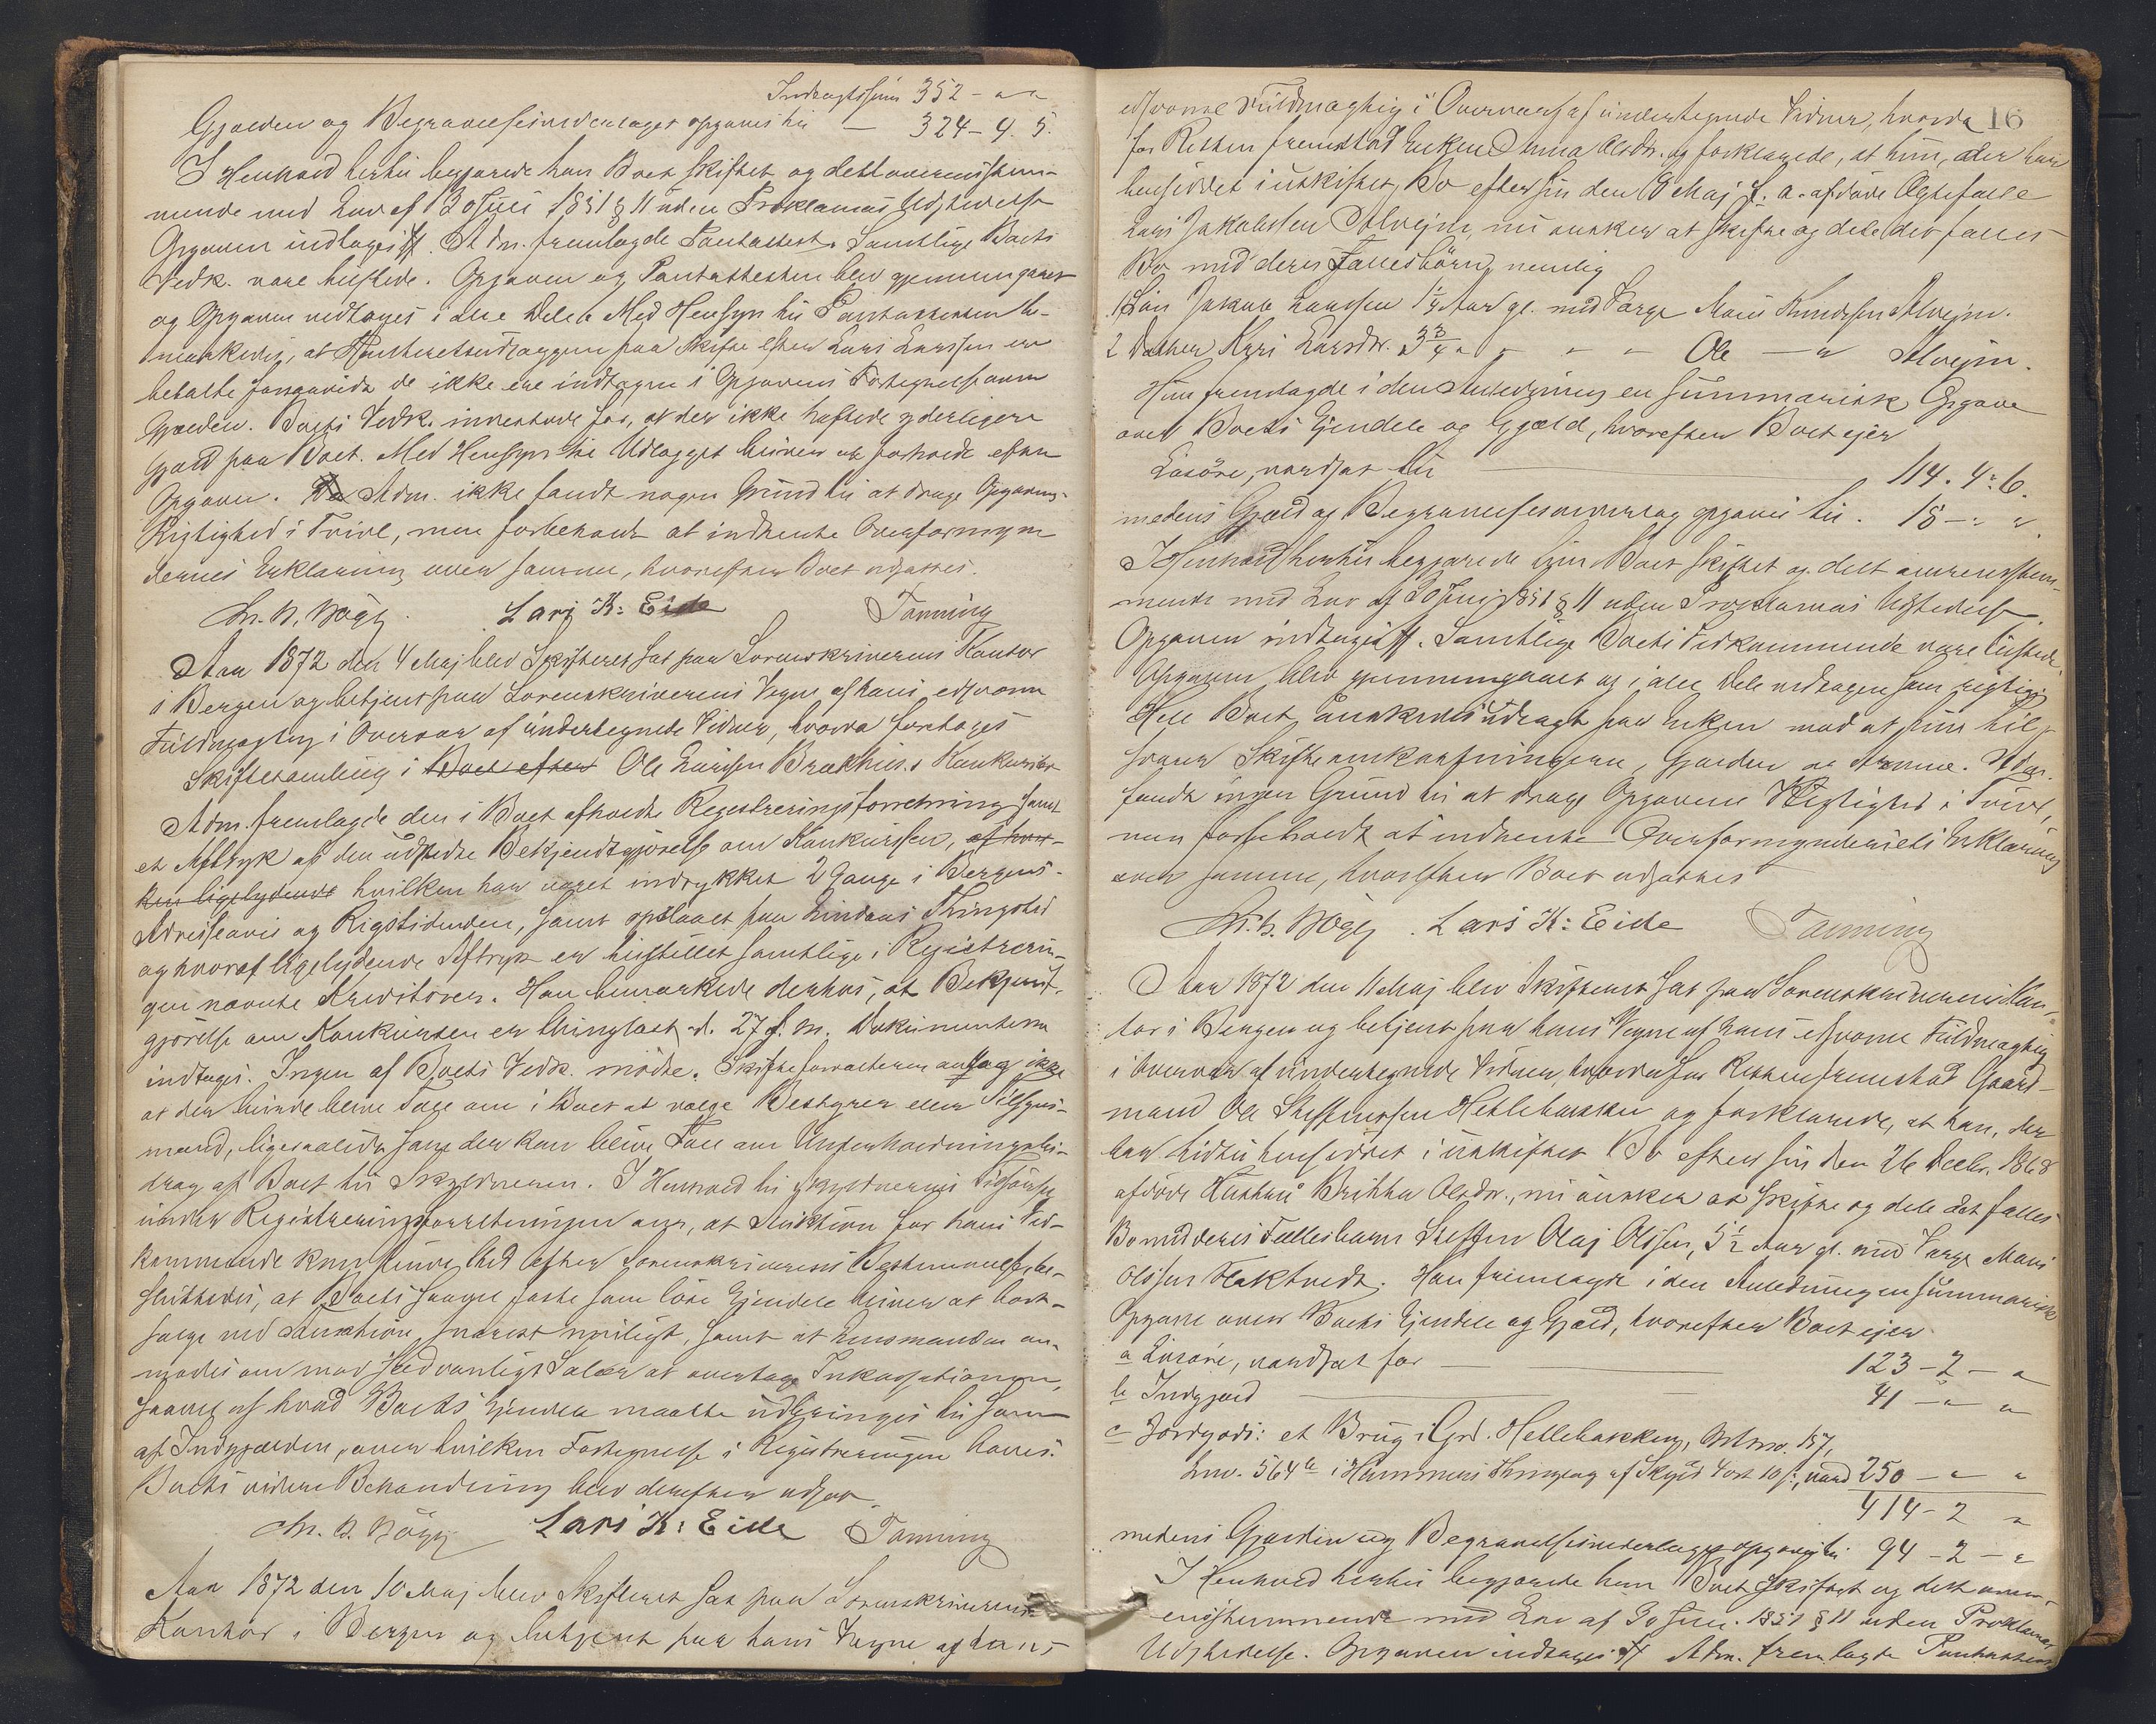 Indtægtssum 352 - " "
Gjælden og Begravelsesomkostninger opgaves til — 324 - 4. 5.
I Henhold hertil begjærede han Boet skiftet og delt overensstem-
mende med Lov af 30 Juli 1851 § 11 uden Proklamas Udstedelse
Opgaven indtages ff. Adm. fremlagde Pantattest. Samtlige Boets
Vedk. vare tilstede. Opgaven og Pantattesten blev gjennemgaaet
og Opgaven vedtoges i alle Dele. Med Hensyn til Pantattesten be-
mærkedes, at Panteretsudlæggene paa Skifte efter Lars Larssen ere
betalte forsaavidt de ikke ere indtagne i Opgavens Fortegnelse over
Gjælden. Boets Vedk. indestode for, at der ikke heftede yderligere
Gjæld paa Boet. Med Hensyn til Udlægget bliver at forholde efter
Opgaven. Da Adm. ikke fandt nogen Grund til at drage Opgavens
Rigtighed i Tvivl, men forbeholdt at indhente Overformyn-
dernes Erklæring over samme, hvorefter Boet udsattes.
Chr. B. Bøgh. Lars K: Eide Tanning
Aar 1872 den 4 Maj blev Skifteret sat paa Sorenskriverens Kontor
i Bergen og betjent paa Sorenskriverens Vegne af hans edsvorne
Fuldmægtig i Overvær af undertegnede Vidner, hvorda foretoges
Skiftesamling i Boet efter Ole Larssen Brækhus's Konkursbo
Adm. fremlagde den i Boet afholdte Registreringsforretning samt
et Aftryk af den udstedte Bekjendtgjørelse om Konkursen, af hvil-
ken ligelydende hvilken har været indrykket 2 Gange i Bergens
Adresseavis og Rigstidenden, samt opslaaet paa Lindaas Thingsted
og hvoraf ligelydende Aftryk er tilstillet samtlige i Registrerin-
gen nævnte Kreditorer. Han bemærkede derhos, at Bekjendt-
gjørelse om Konkursen er thinglæst d. 27 f. M. Dokumenterne
indtages. Ingen af Boets Vedk. mødte. Skifteforvalteren antog ikke
at der kunde blive Tale om i Boet at vælge Bestyrer eller Tilsyns-
mand, ligesaalidt som der kan blive Tale om Underholdningsbi-
drag af Boet til Skyldneren. I Henhold til Skyldnerens Tilførsel
under Registreringsforretningen om, at Auktion for hans Ved-
kommende kan finde Sted efter Sorenskriverens Bestemmelse be-
sluttedes, at Boets saavel faste som løse Ejendele bliver at bort-
sælge ved Auktion snarest muligt, samt at Lensmanden an-
modes om mod sædvanligt Salær at overtage Inkassationen,
saavel af hvad Boets Ejendele maatte udbringes til som
af Indgjælden, over hvilken Fortegnelse i Registreringen haves.
Boets videre Behandling blev derefter udsat.
Chr. B. Bøgh Lars K: Eide Tanning
Aar 1872 den 10 Maj blev Skifteret sat paa Sorenskriverens
Kontor i Bergen og betjent paa hans Vegne af hans
16
edsvorne Fuldmægtig i Overvær af undertegnede Vidner, hvorda
for Retten fremstod Enken Anna Olsdr. og forklarede, at hun, der har
hensiddet i uskiftet Bo efter sin den 8 Maj f. a. afdøde Ægtefælle
Lars Jakobssen Alvejm, nu ønsker at skifte og dele det fælles
Bo med deres Fællesbørn, nemlig
1 Søn Jakob Larssen 1 1/4 Aar gl. med Værge Mons Knudssen Alvejm.
2 Datter Kari Larsdr. 3 3/4 " " " " Ole — " Alvejm.
Hun fremlagde i den Anledning en summarisk Opgave
over Boets Ejendele og Gjæld, hvorefter Boet ejer
Løsøre, værdsat til 114. 4: 6.
medens Gjæld og Begravelsesomkostn. opgaves til. 18 - " "
I Henhold hertil begjærede hun Boet skiftet og delt overensstem-
mende med Lov af 30 Juli 1851 § 11 uden Proklamas Udstedelse.
Opgaven indtages ff. Samtlige Boets Vedkommende vare tilstede.
Opgaven blev gjennemgaaet og i alle Dele vedtagen som rigtig.
Hele Boet ønskedes udlagt paa Enken mod at hun til-
svarer Skifteomkostningerne, Gjælden og Arvene. Adm.
fandt ingen Grund til at drage Opgavens Rigtighed i Tvivl,
men forbeholdt at indhente Overformynderiets Erklæring
over samme, hvorefter Boet udsattes
Chr. B. Bøgh. Lars K: Eide Tanning
Aar 1872 den 11 Maj blev Skifteret sat paa Sorenskriverens Kon-
tor i Bergen og betjent paa hans Vegne af hans edsvorne Fuldmægtig
i Overvær af undertegnede Vidner, hvorda for Retten fremstod Gaard-
mand Ole Steffenssen Hellebakken og forklarede, at han, der
har hidtil hensiddet i uskiftet Bo efter sin den 26 Decbr. 1868
afdøde Hustru Brithe Olsdr., nu ønsker at skifte og dele det fælles
Bo med deres Fællesbarn Steffen Olaj Olsen, 5 1/2 Aar gl. med Værge Mons
Olssen Flaktvedt. Han fremlagde i den Anledning en summarisk
Opgave over Boets Ejendele og Gjæld, hvorefter Boet ejer
a Løsøre, værdsat for — 123 - 2 - "
b Indgjæld — 41 - " "
c Jordgods: et Brug i Grd. Hellebakken, Mno. 157,
Lno. 564 b i Hammers Thinglag af Skyld 4 ort 10 s., værd 250 - " "
414 - 2 "
medens Gjælden og Begravelsesomkostninger opgaves til 94 - 2 - "
I Henhold hertil begjærede han Boet skiftet og delt over-
ensstemmende med Lov af 30 Juli 1851 § 11 uden Proklamas
Udstedelse. Opgaven indtages ff Adm. fremlagde Pantattest